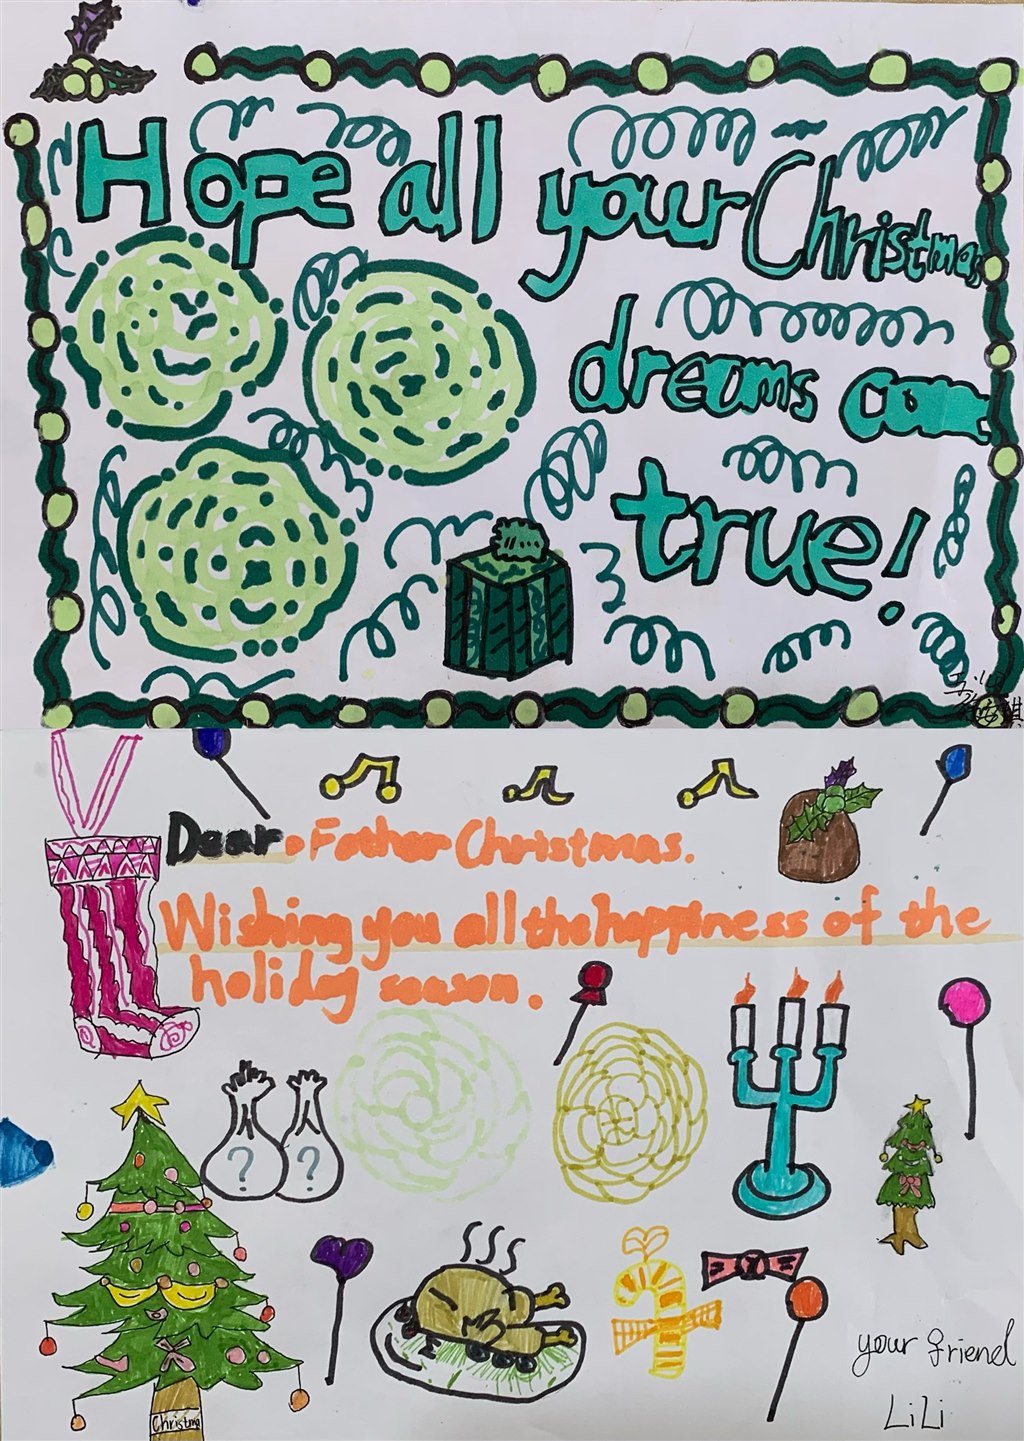 Hope all your Christmas
dreams come
true!
Dear Father Christmas.
Wishing you all the happiness of the
holiday season.
? ?
Christma
your friend
LiLi